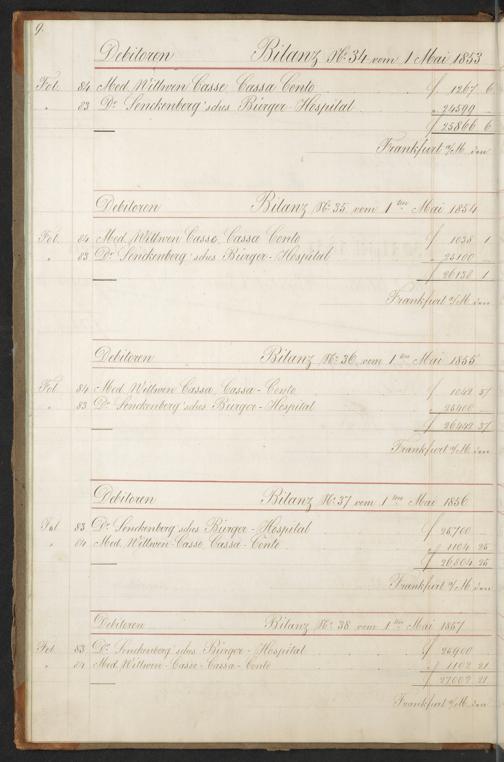 9.
Debitoren Bilanz No. 34 vom 1 Mai 1853
Fol. 84 Med. Wittwen Casse, Cassa Conto f 1267 6
" 83 Dr. Senckenberg'sches Bürger-Hospital " 24599 -
f 25866 6
Frankfurt a/M. den
Debitoren Bilanz No. 35 vom 1ten Mai 1854
Fol. 84 Med. Wittwen Casse, Cassa Conto f 1038 1
" 83 Dr. Senckenberg'sches Bürger-Hospital " 25100 -
f 26138 1
Frankfurt a/M. den
Debitoren Bilanz No. 36 vom 1ten Mai 1855
Fol. 84 Med. Wittwen Cassa, Cassa-Conto f 1049 37
" 83 Dr. Senckenberg'sches Bürger-Hospital " 25400 -
f 26449 37
Frankfurt a/M. den
Debitoren Bilanz No. 37 vom 1ten Mai 1856
Fol. 83 Dr. Senckenberg'sches Bürger-Hospital f 25700 -
" 84 Med. Wittwen-Casse, Cassa-Conto f 1104 25
f 26804 25
Frankfurt a/M. den
Debitoren Bilanz No. 38 vom 1ten Mai 1857
Fol. 83 Dr. Senckenberg'sches Bürger-Hospital f 25900 -
" 84 Med. Wittwen-Casse-Cassa-Conto f 1102 21
f 27002 21
Frankfurt a/M. den